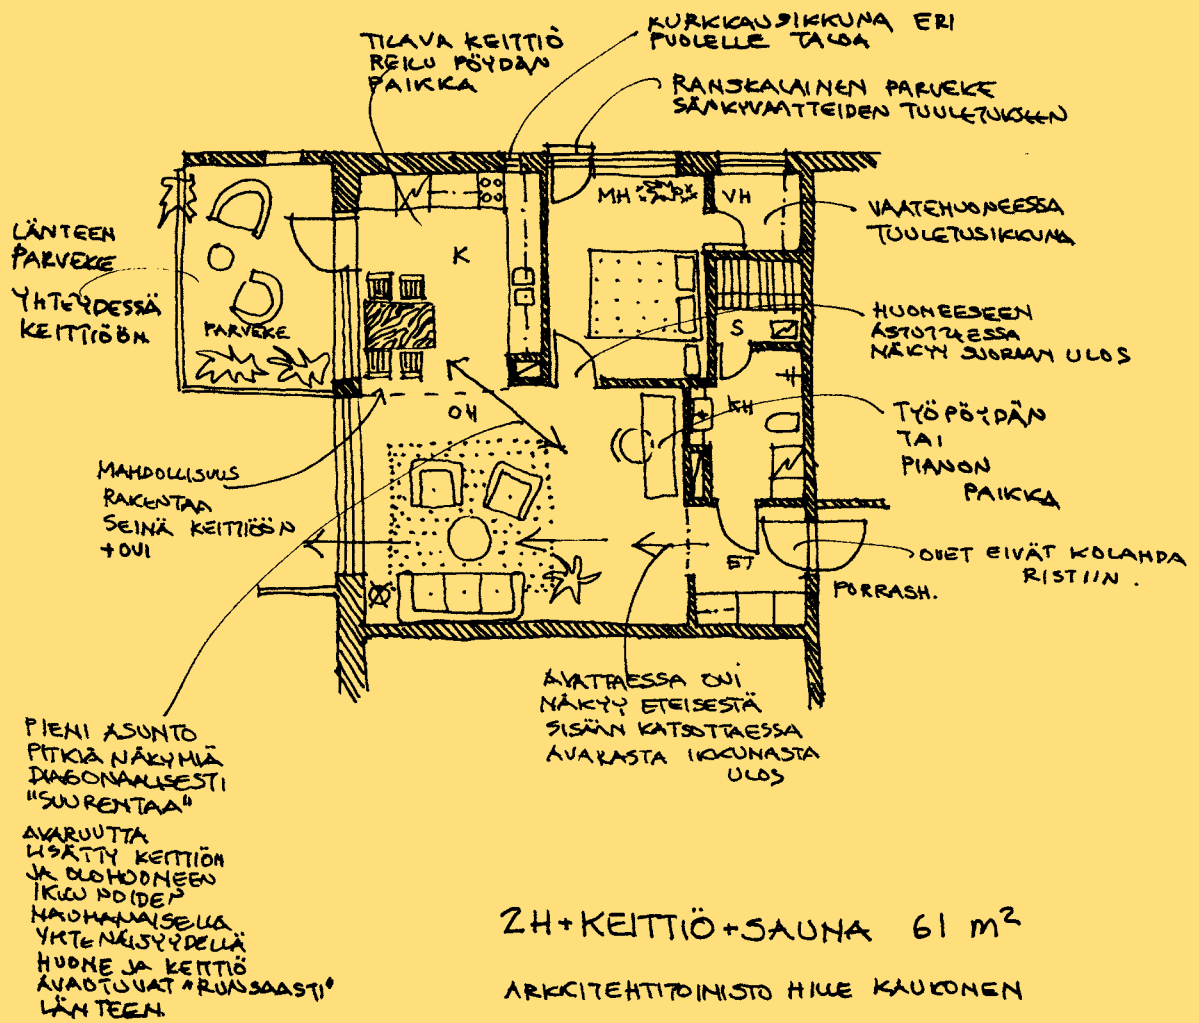 TILAVA KEITTIÖ
REILU PÖYDÄN
PAIKKA
KURKKAUSIKKUNA ERI
PUOLELLE TALOA
RANSKALAINEN PARVEKE
SÄNKYVAATTEIDEN TUULETUKSEEN
LÄNTEEN
PARVEKE
YHTEYDESSÄ
KEITTIÖÖN
PARVEKE
K
MH
VH
S
KH
OH
ET
VAATEHUONEESSA
TUULETUSIKKUNA
HUONEESEEN
ASTUTTAESSA
NÄKYY SUORAAN ULOS
TYÖPÖYDÄN
TAI
PIANON
PAIKKA
MAHDOLLISUUS
RAKENTAA
SEINÄ KEITTIÖÖN
+OVI
OVET EIVÄT KOLAHDA
RISTIIN.
PORRASH.
AVATTAESSA OVI
NÄKYY ETEISESTÄ
SISÄÄN KATSOTTAESSA
AVARASTA IKKUNASTA
ULOS
PIENI ASUNTO
PITKIÄ NÄKYMIÄ
DIAGONAALISESTI
"SUURENTAA"
AVARUUTTA
LISÄTTY KEITTIÖN
JA OLOHUONEEN
IKKUNOIDEN
NAUHAMAISELLA
YHTENÄISYYDELLÄ
HUONE JA KEITTIÖ
AVAUTUVAT "RUNSAASTI"
LÄNTEEN
2H+KEITTIÖ+SAUNA 61 m²
ARKKITEHTITOIMISTO HILLE KAUKONEN